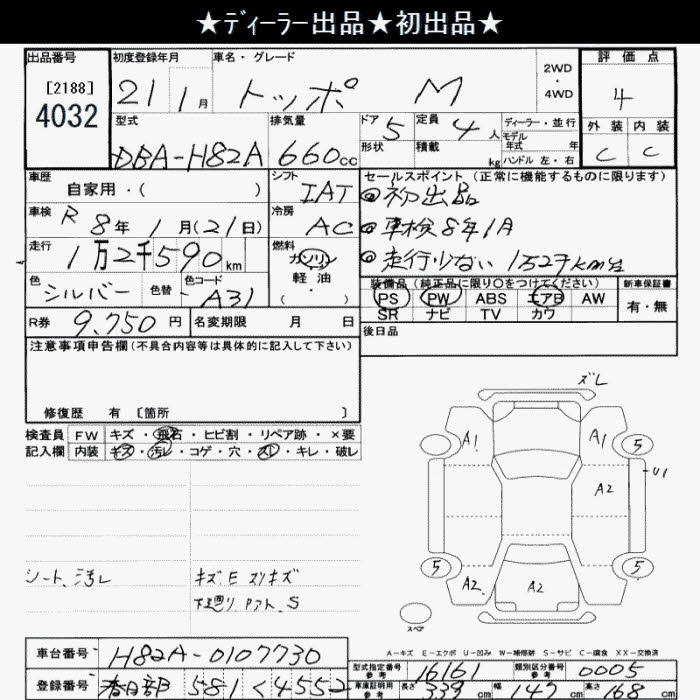 ★ディーラー出品★初出品★
出品番号 初度登録年月 車名・グレード 2WD ・ 4WD 評価点
[2188]
4032 21 1月 トッポ M 4
型式 排気量 ドア 5 定員 4人 ディーラー・並行 外装 内装
DBA-H82A 660cc 形状 積載 kg モデル年式 年 ハンドル 左・右 C C
車歴 自家用・( ) シフト IAT セールスポイント(正常に機能するものに限ります)
◎初出品
車検 R 8年 1月(21日) 冷房 AC ◎車検8年1月
走行 1万2千590km 燃料 ガソリン 軽油 ( ・ ) ◎走行少ない 1万2千km台
色 シルバー 色替 色コード A31 装備品(純正品に限り○をつけてください) 新車保証書
PS PW ABS エアB AW 有・無
SR ナビ TV カワ
R券 9,750円 名変期限 月 日 後日品
注意事項申告欄(不具合内容等は具体的に記入して下さい)
修復歴 有 〔箇所 〕
検査員 FW キズ・飛石・ヒビ割・リペア跡・×要
記入欄 内装 キズ・汚レ・コゲ・穴・スレ・キレ・破レ
シート、汚レ キズE スリキズ
下廻り P.アト、S
ズレ
A1 A1 5
A2 U1
5 A2 A2 5
スペア
A-キズ E-エクボ U-凹み W-補修跡 S-サビ C-腐食 XX-交換済
車台番号 H82A-0107730
型式指定番号 参考 16161 類別区分番号 参考 0005
登録番号 春日部 581 く 4552
車庫証明用 参考 長さ 339cm 幅 147cm 高さ 168cm